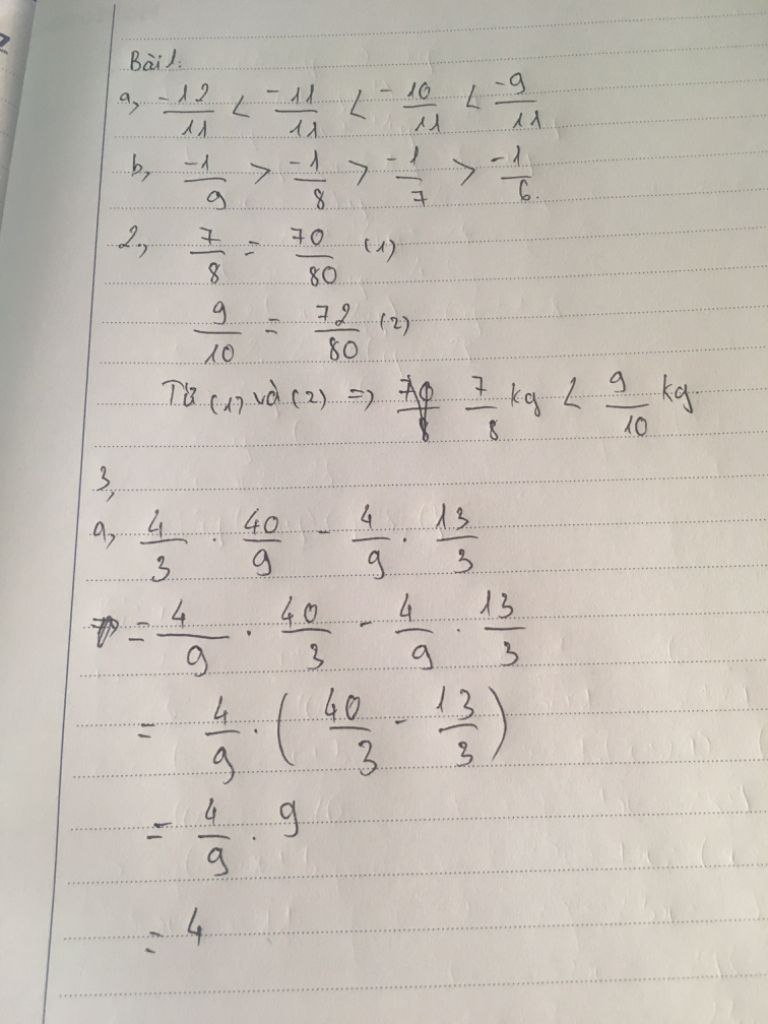 Bài 1:
a, -12/11 < -11/11 < -10/11 < -9/11
b, -1/9 > -1/8 > -1/7 > -1/6.
2., 7/8 = 70/80 (1)
9/10 = 72/80 (2)
Từ (1) và (2) => 7/8 kg < 9/10 kg.
3,
a, 4/3 . 40/9 - 4/9 . 13/3
= 4/9 . 40/3 - 4/9 . 13/3
= 4/9 . (40/3 - 13/3)
= 4/9 . 9
= 4